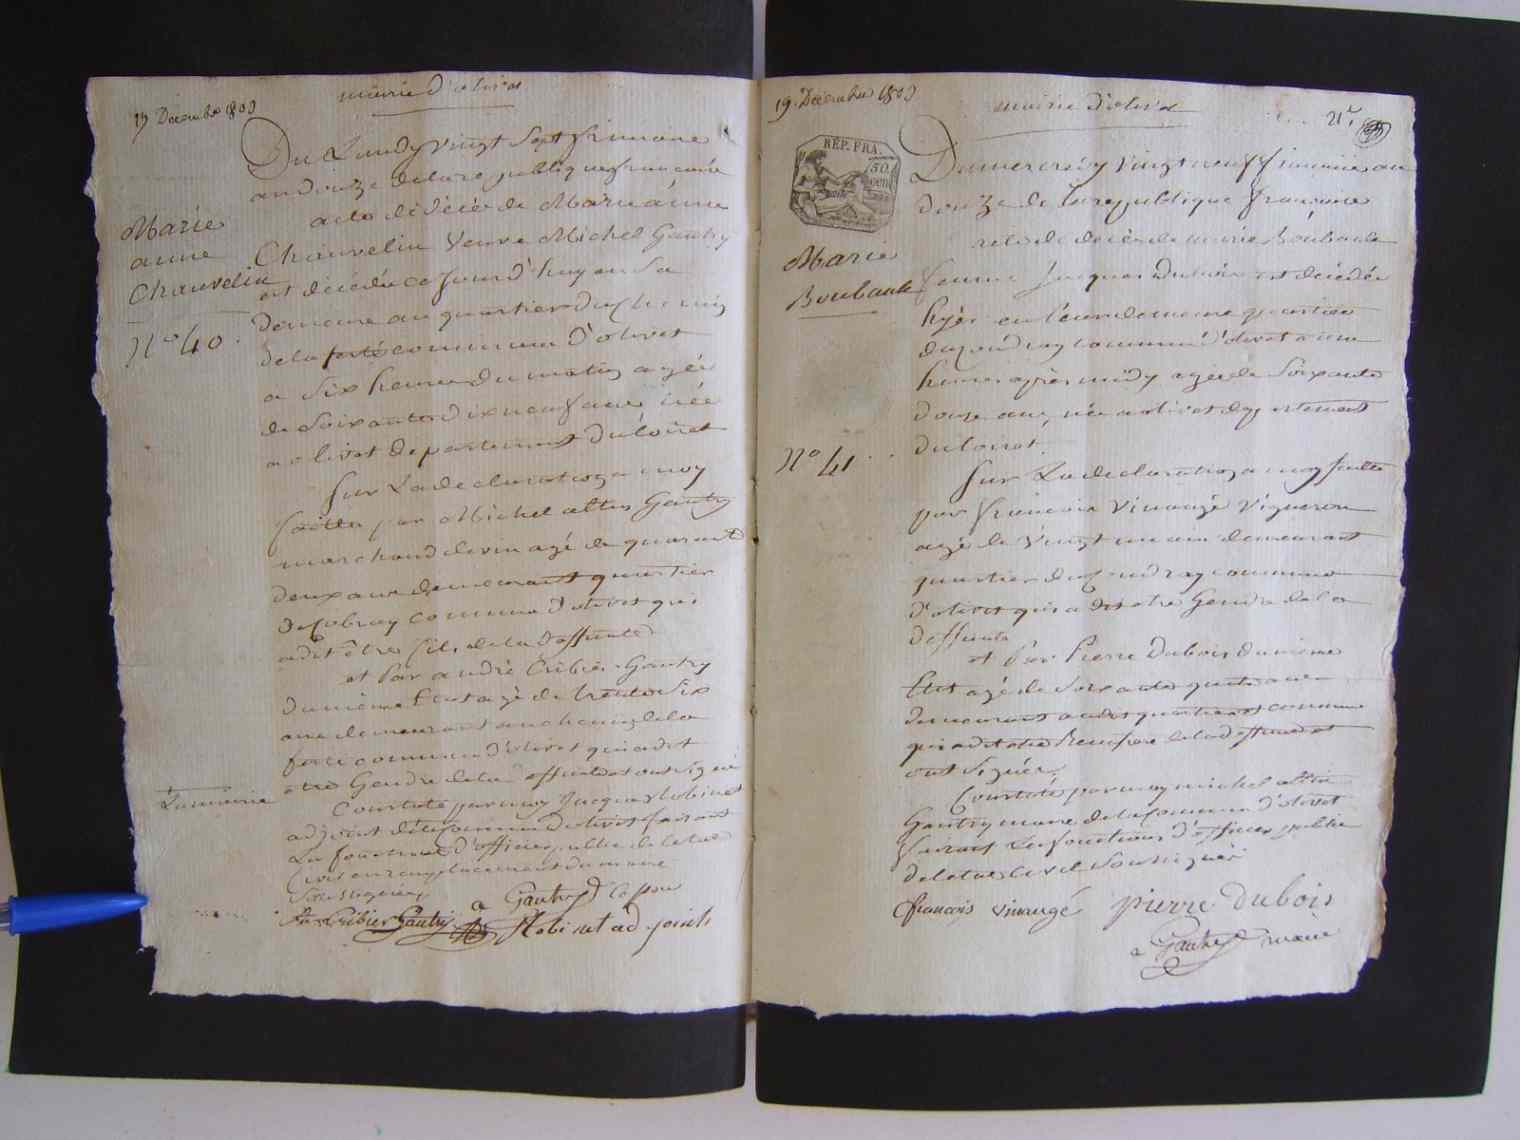 19 Decembre 1803
mairie d'olivet
Du Lundy vingt Sept frimaire
an douze de la republique francaise
acte de décès de Marie anne
Chauvelin Veuve Michel Gautry
est décédée ce Jourd'huy en Sa
Demeure au quartier du chemin
de la ferté commune d'olivet
a Six heures du matin agée
de Soixante dix neuf ans née
a olivet departement du loiret
Sur La declaration a moy
faitte par Michel altin Gautry
marchand de vin agé de quarante
deux ans demeurant quartier
commune d'olivet qui
a dit être fils de la deffunte
et Par andré Cribier Gautry
du même Etat agé de trente Six
ans demeurant au chemin de la
ferté commune d'olivet qui a dit
etre Gendre de la deffunte et ont signé
Constaté par moy Jacques Robinet
adjoint de la commune d'olivet faisant
Les fonctions d'officier public de l'etat
Civil en remplacement du maire
Soussignés
a Gautry
Cribier Gautry Robinet adjoint
Marie
anne
Chauvelin
N° 40
19 Decembre 1803
mairie d'olivet
21
RÉP. FRA.
50
CEN
Du mercredy vingt neuf frimaire an
douze de la republique francaise
acte de décès de marie Boubault
femme Jacques est décédée
hyer en leur demeure quartier
du commune d'olivet a une
heure après midy agée de Soixante
douze ans, née a olivet departement
du loiret
Sur La declaration a moy faitte
par francois Vinaugé Vigneron
agé de Vingt un ans demeurant
quartier du commune
d'olivet qui a dit etre Gendre de la
deffunte
et Par Pierre Dubois du même
Etat agé de Soixante quatre ans
demeurant au dit quartier et commune
qui a dit etre Beau frere de la deffunte et
ont Signés
Constaté par moy michel altin
Gautry maire de la commune d'olivet
faisant Les fonctions d'officier public
de l'etat Civil Soussignés
françois vinaugé pierre dubois
a Gautry maire
Marie
Boubault
N° 41